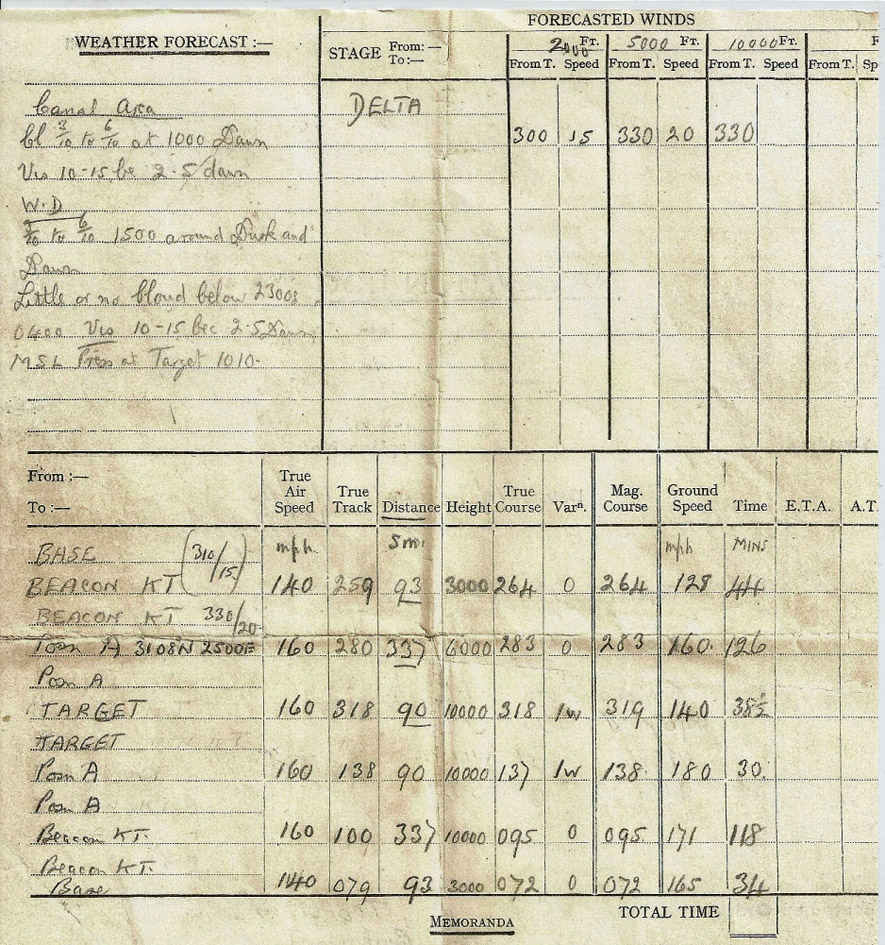 FORECASTED WINDS
WEATHER FORECAST :—
STAGE From: — To:—
2000 FT. 5000 FT. 10000 FT. F
From T. Speed From T. Speed From T. Speed From T. Sp
Canal Area DELTA
Cl 3/10 to 6/10 at 1000 Dawn 300 15 330 20 330
Vis 10-15 bec 2.5 dawn
W.D
to 6/10 1500 around Dusk and
Dawn
Little or no cloud below 2300s
0400 Vis 10-15 bec 2.5 Dawn
MSL Press at Target 1010.
From :—
To :—
True Air Speed True Track Distance Height True Course Varn. Mag. Course Ground Speed Time E.T.A. A.T.
BASE (310/15) mph. mph MINS
BEACON KT 140 259 93 3000 264 0 264 128 44
BEACON KT 330/20
Posn A 3108N 2500E 160 280 337 6000 283 0 283 160. 126
Posn A
TARGET 160 318 90 10000 318 1W 319 140 38½
TARGET
Posn A 160 138 90 10000 137 1W 138. 180 30.
Posn A
Beacon KT. 160 100 337 10000 095 0 095. 171 118
Beacon KT.
Base 140 079 93 3000 072 0 072 165 34
TOTAL TIME
MEMORANDA